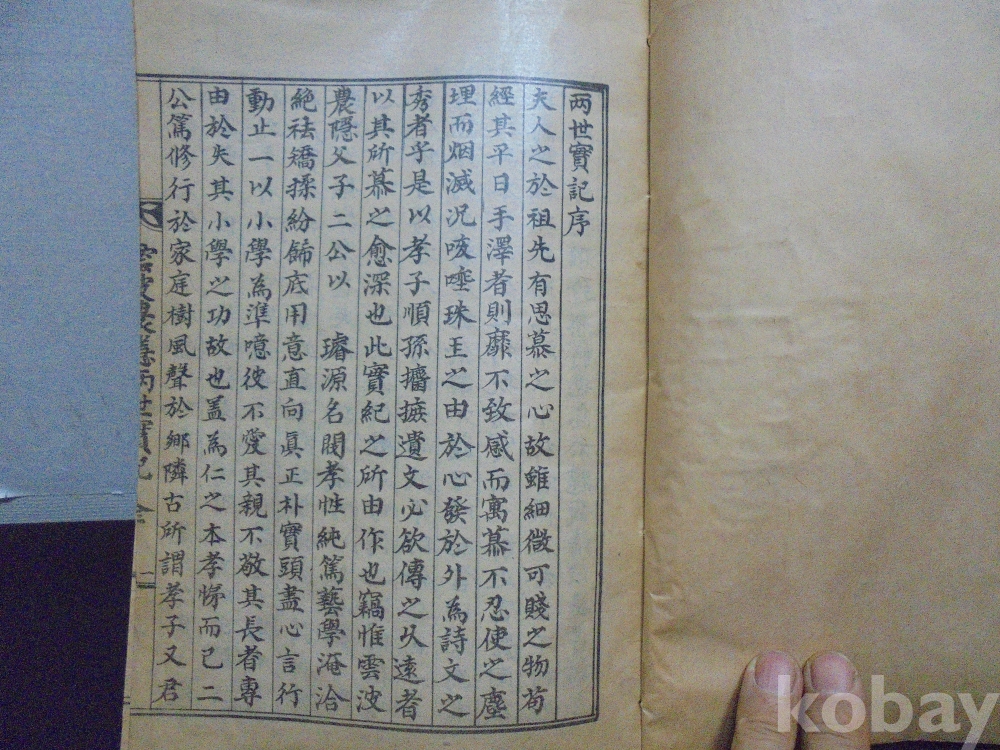 两世實記序
夫人之於祖先有思慕之心故雖細微可賤之物苟
經其平日手澤者則靡不致感而寓慕不忍使之塵
埋而烟滅況咳唾珠玉之由於心發於外為詩文之
秀者乎是以孝子順孫攟摭遺文必欲傳之久遠者
以其所慕之愈深也此實紀之所由作也竊惟雲波
農隱父子二公以 璿源名閥孝性純篤藝學淹洽
絶祛矯揉紛餙底用意直向眞正朴實頭盡心言行
動止一以小學為準噫彼不愛其親不敬其長者專
由於失其小學之功故也盖為仁之本孝悌而已二
公篤修行於家庭樹風聲於鄉隣古所謂孝子又君
雲波農隱两世實記
kobay